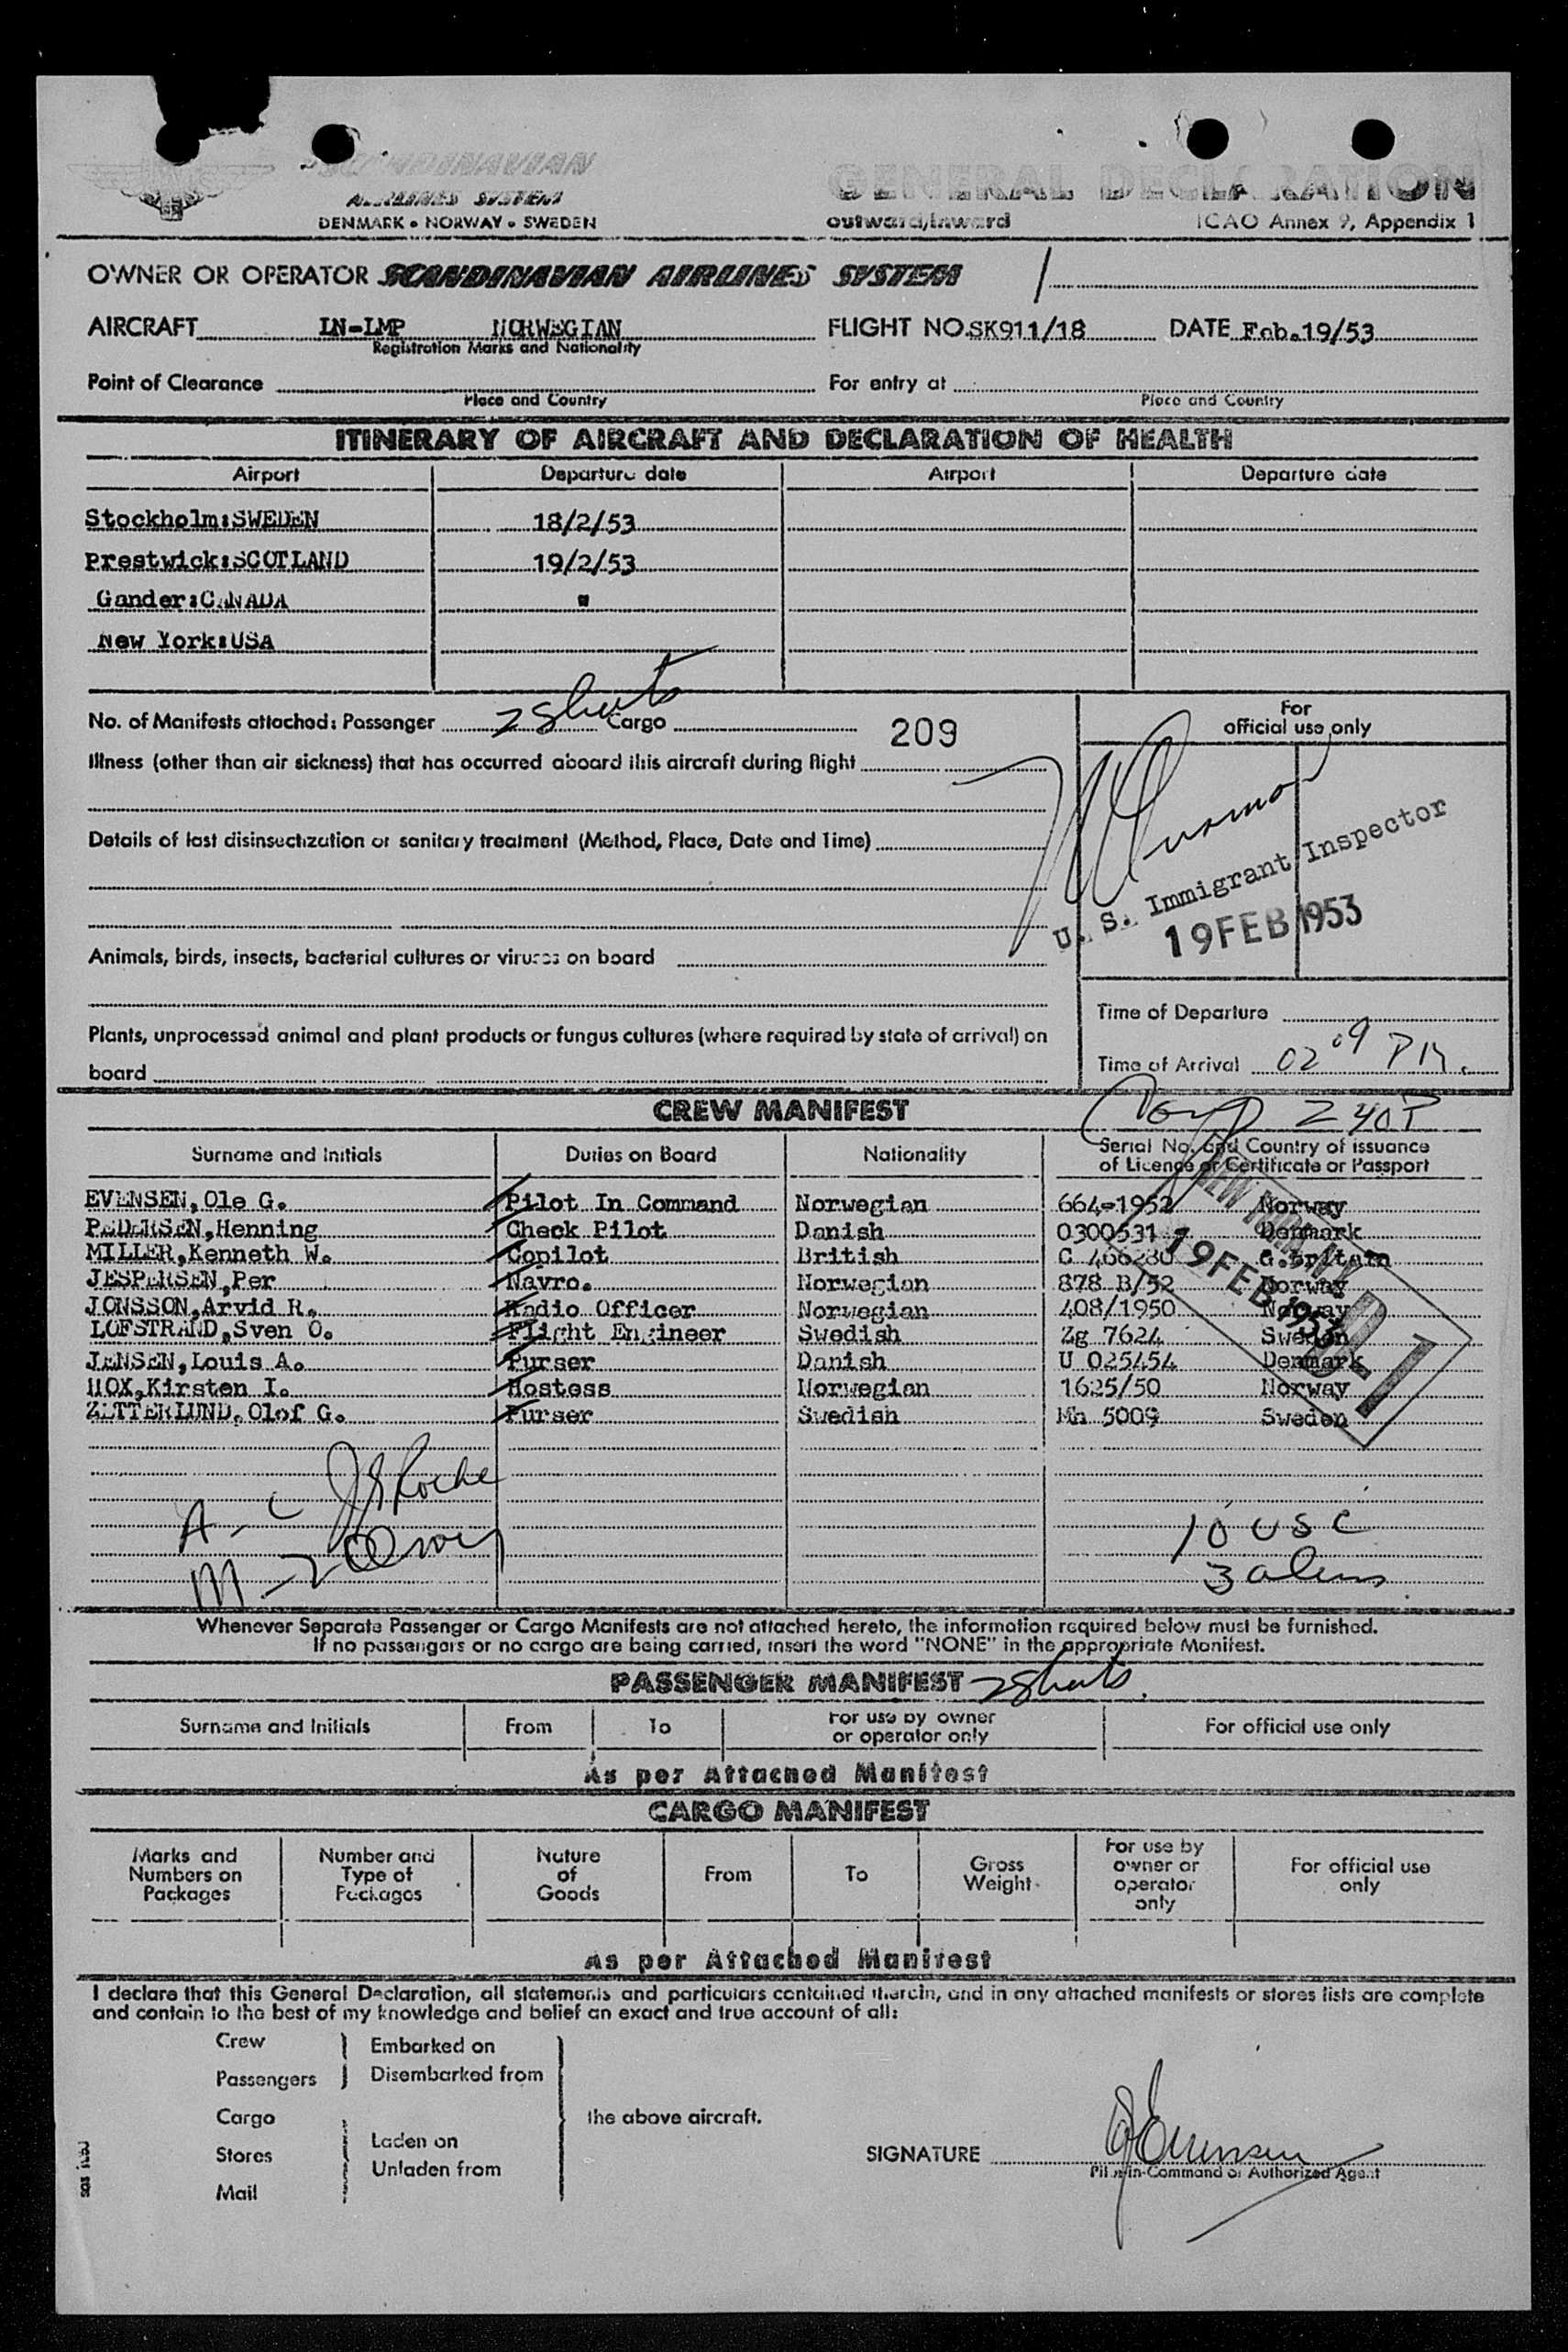 SCANDINAVIAN
AIRLINES SYSTEM
DENMARK • NORWAY • SWEDEN
GENERAL DECLARATION
outward/inward
ICAO Annex 9, Appendix 1
OWNER OR OPERATOR SCANDINAVIAN AIRLINES SYSTEM
AIRCRAFT LN-LMP NORWEGIAN FLIGHT NO. SK911/18 DATE Feb.19/53
Registration Marks and Nationality
Point of Clearance For entry at
Place and Country Place and Country
ITINERARY OF AIRCRAFT AND DECLARATION OF HEALTH
Airport Departure date Airport Departure date
Stockholm:SWEDEN 18/2/53
Prestwick:SCOTLAND 19/2/53
Gander:CANADA "
New York:USA
No. of Manifests attached: Passenger 2 Sheets Cargo 209
For
official use only
Illness (other than air sickness) that has occurred aboard this aircraft during flight
Details of last disinsectization or sanitary treatment (Method, Place, Date and Time)
U. S. Immigrant Inspector
19 FEB 1953
Animals, birds, insects, bacterial cultures or viruses on board
Time of Departure
Plants, unprocessed animal and plant products or fungus cultures (where required by state of arrival) on
board
Time of Arrival 02 09 PM.
CREW MANIFEST
240P
Surname and Initials Duties on Board Nationality Serial No. and Country of issuance
of Licence or Certificate or Passport
EVENSEN,Ole G. Pilot In Command Norwegian 664-1952 Norway
PEDERSEN,Henning Check Pilot Danish 0300531 Denmark
MILLER,Kenneth W. Copilot British C 466280 G.Britain
JESPERSEN,Per Navro. Norwegian 878 B/52 Norway
JONSSON,Arvid R. Radio Officer Norwegian 408/1950 Norway
LOFSTRAND,Sven O. Flight Engineer Swedish Zg 7624 Sweden
JENSEN,Louis A. Purser Danish U 025454 Denmark
MOX,Kirsten I. Hostess Norwegian 1625/50 Norway
ZETTERLUND,Olof G. Purser Swedish Mh 5009 Sweden
NEW YORK
19 FEB 1953
A - C JS Roche
10 USC
M - 2
3 aliens
Whenever Separate Passenger or Cargo Manifests are not attached hereto, the information required below must be furnished.
If no passengers or no cargo are being carried, insert the word "NONE" in the appropriate Manifest.
PASSENGER MANIFEST 2 Sheets.
Surname and Initials From To For use by owner
or operator only For official use only
As per Attached Manifest
CARGO MANIFEST
Marks and
Numbers on
Packages
Number and
Type of
Packages
Nature
of
Goods
From
To
Gross
Weight
For use by
owner or
operator
only
For official use
only
As per Attached Manifest
I declare that this General Declaration, all statements and particulars contained therein, and in any attached manifests or stores lists are complete
and contain to the best of my knowledge and belief an exact and true account of all:
Crew
Passengers
Embarked on
Disembarked from
Cargo
Stores
Mail
Laden on
Unladen from
the above aircraft.
SIGNATURE
Pilot-in-Command or Authorized Agent